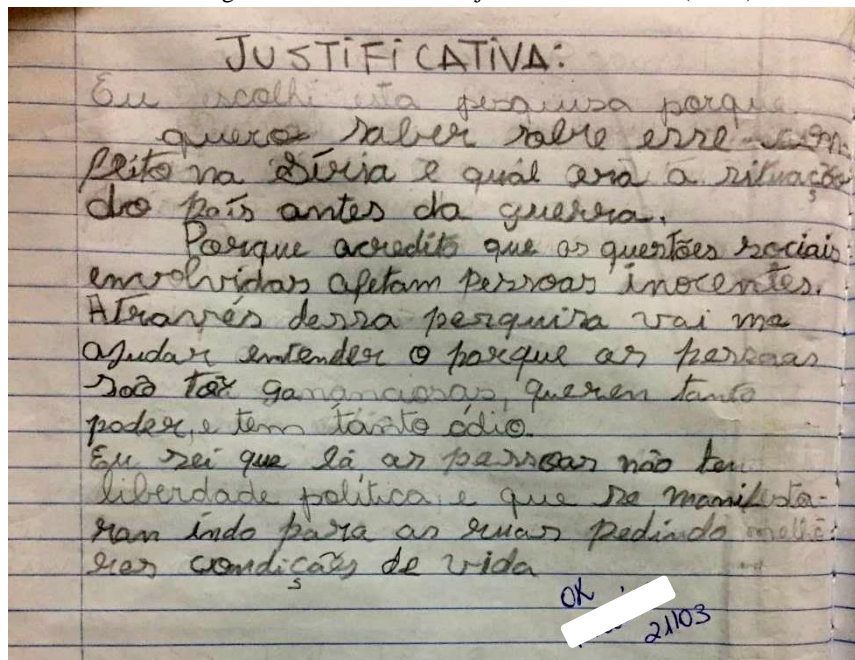 JUSTIFICATIVA:
Eu escolhi esta pesquisa porque
quero saber sobre esse con-
flito na Síria e qual era a situação
do país antes da guerra.
Porque acredito que as questões sociais
envolvidas afetam pessoas inocentes.
Através dessa pesquisa vai me
ajudar entender o porque as pessoas
são tão gananciosas, querem tanto
poder, e tem tanto ódio.
Eu sei que lá as pessoas não tem
liberdade política, e que se manifesta-
ram indo para as ruas pedindo melho-
res condições de vida
OK
21/03